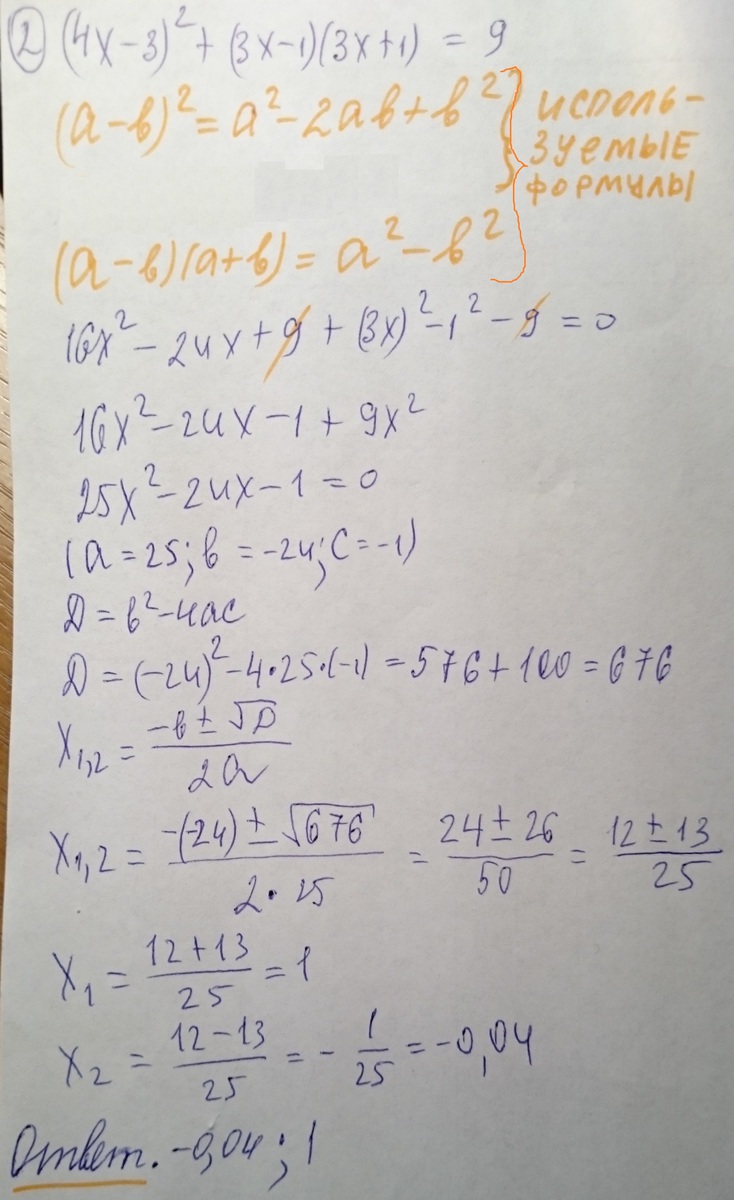 ② (4x-3)² + (3x-1)(3x+1) = 9
(а-в)² = а² - 2ав + в²
исполь-
зуемые
формулы
(а-в)(а+в) = а² - в²
16x² - 24x + 9 + (3x)² - 1² - 9 = 0
16x² - 24x - 1 + 9x²
25x² - 24x - 1 = 0
(а = 25; в = -24; с = -1)
Д = в² - 4ас
Д = (-24)² - 4·25·(-1) = 576 + 100 = 676
x₁,₂ = (-в ± √D) / 2а
x₁,₂ = (-(-24) ± √676) / (2·25) = (24 ± 26) / 50 = (12 ± 13) / 25
x₁ = (12 + 13) / 25 = 1
x₂ = (12 - 13) / 25 = - 1/25 = -0,04
Ответ. -0,04; 1